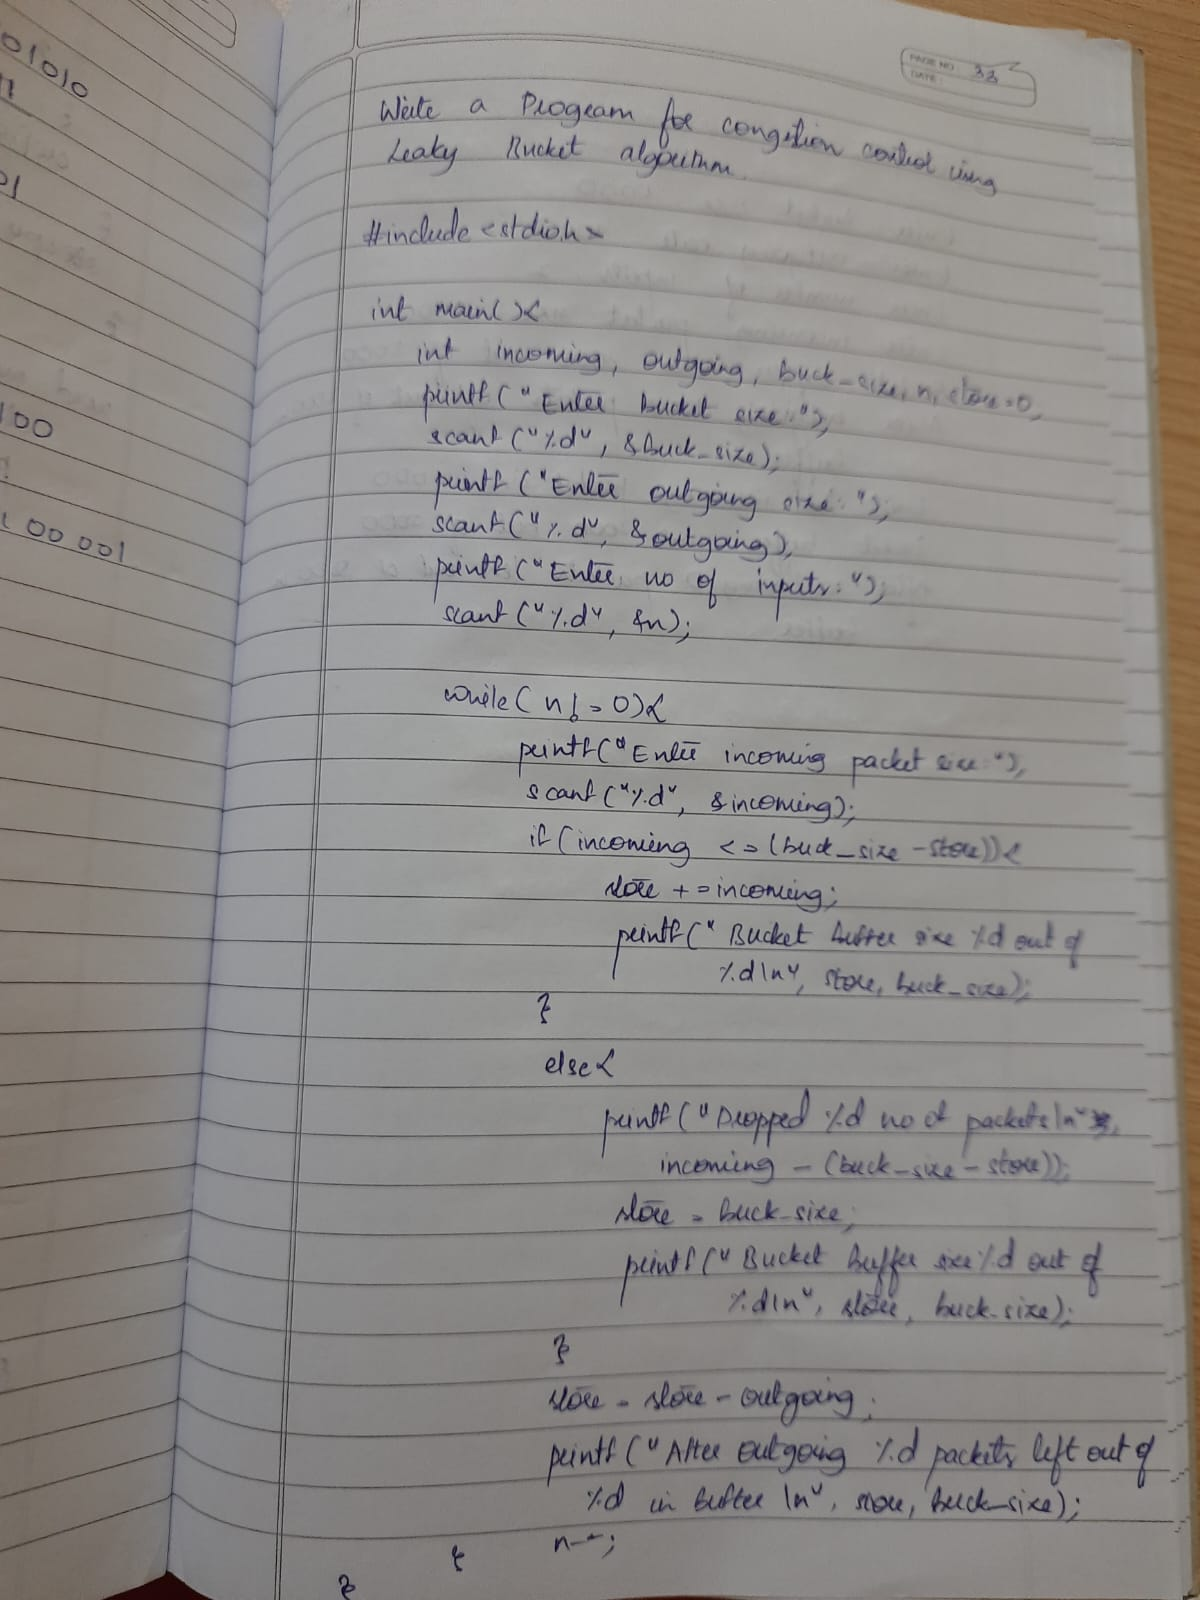 01010
11
01
100
100001
PAGE NO. 33
DATE:
Write a Program for congestion control using
Leaky Bucket algorithm.
#include <stdio.h>
int main(){
int incoming, outgoing, buck_size, n, store=0;
printf("Enter bucket size:");
scanf("%d", &buck_size);
printf("Enter outgoing size:");
scanf("%d", &outgoing);
printf("Enter no of inputs:");
scanf("%d", &n);
while(n!=0){
printf("Enter incoming packet size:");
scanf("%d", &incoming);
if(incoming <=(buck_size-store)){
store +=incoming;
printf("Bucket buffer size %d out of
%d\n", store, buck_size);
}
else{
printf("Dropped %d no of packets\n",
incoming - (buck_size-store));
store = buck_size;
printf("Bucket buffer size %d out of
%d\n", store, buck_size);
}
store = store - outgoing;
printf("After outgoing %d packets left out of
%d in buffer \n", store, buck_size);
n--;
}
}